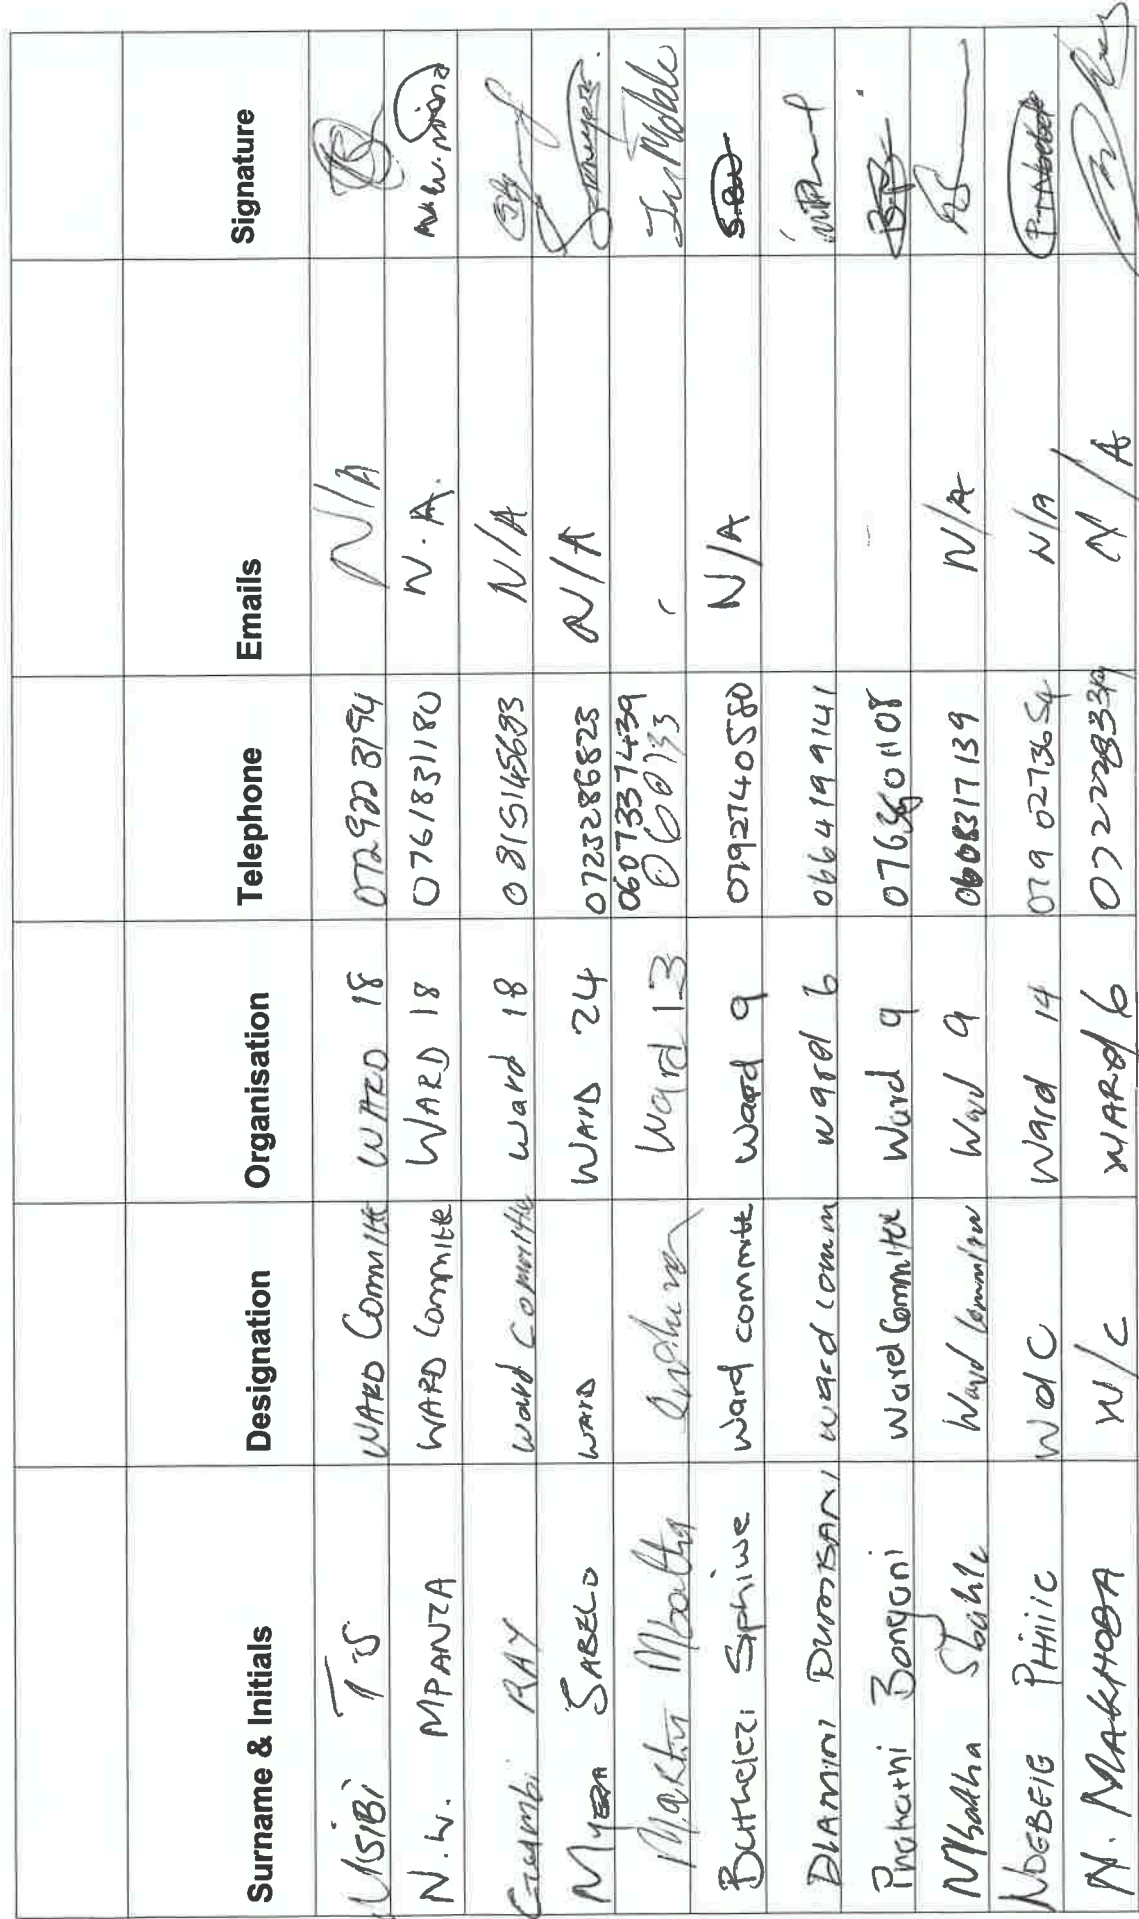 Surname & Initials Designation Organisation Telephone Emails Signature
VISIBI TS WARD Committe WARD 18 0729223194 N/A
N.W. MPANZA WARD Committe WARD 18 0761831180 N.A.
Gumbi RAY Ward Committe Ward 18 0815145693 N/A
MYEZA SABELO WARD WARD 24 0723286825 N/A
Martin Mbatha Induna Ward 13 0607337439
060733
Buthelezi Siphiwe Ward committe Ward 9 0792740580 N/A
DLAMINI DUMISANI Ward comm Ward 6 0664199141
Pnakathi Bongani Ward Committee Ward 9
Mbatha Sbahle Ward Committee Ward 9 0608317139 N/A
NDEBELE PHIIIC WdC Ward 14 0790273654 N/A
N. MAKHOBA W/C WARD 6 N/A